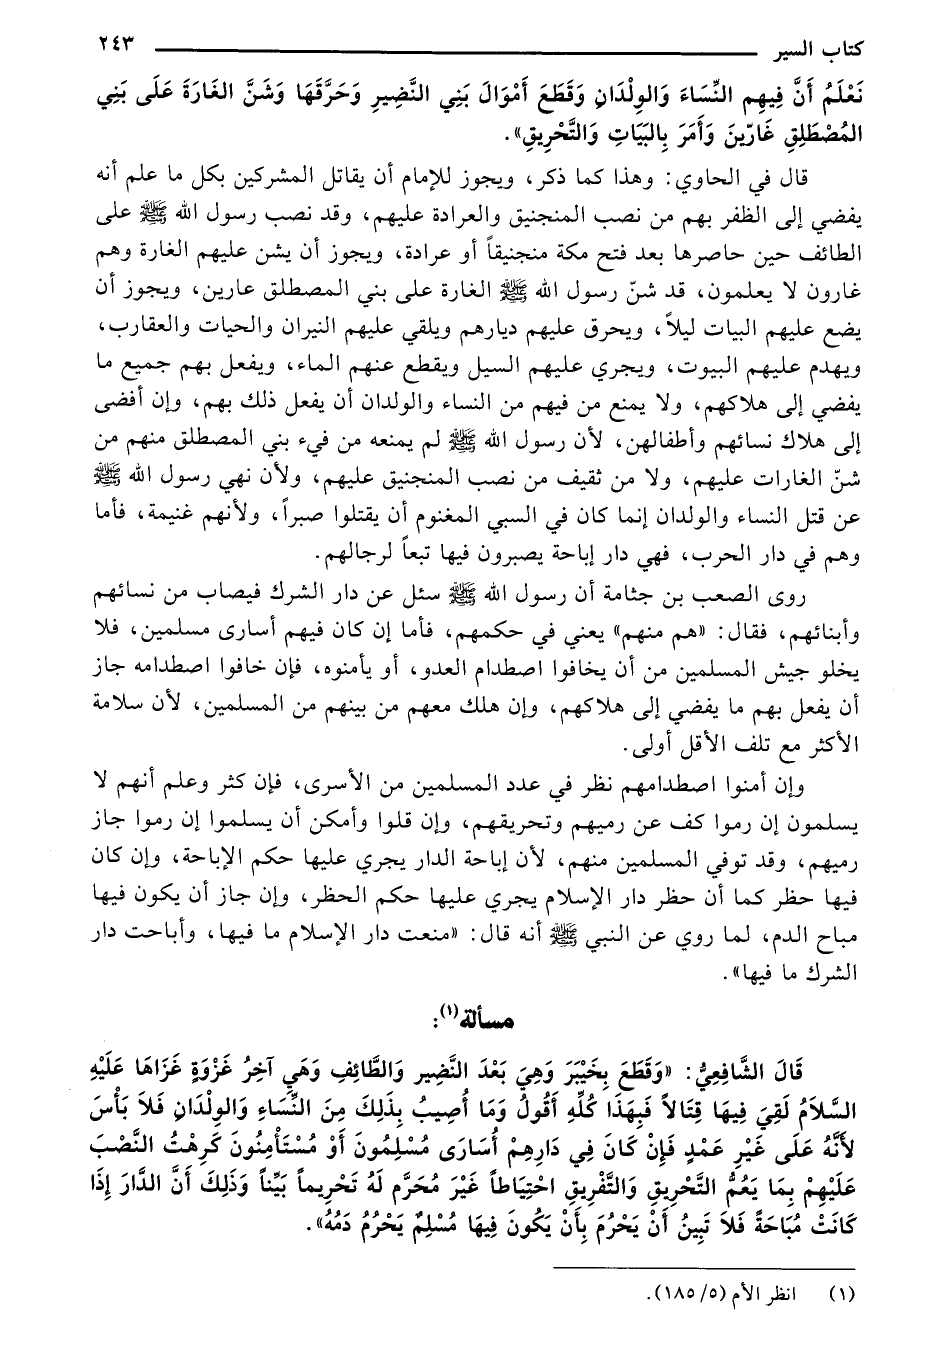 كتاب السير ٢٤٣
نَعْلَمُ أَنَّ فِيهِم النِّسَاءَ وَالوِلْدَانِ وَقَطَعَ أَمْوَالَ بَنِي النَّضِيرِ وَحَرَّقَهَا وَشَنَّ الغَارَةَ عَلَى بَنِي
المُصْطَلِقِ غَارّينَ وَأَمَرَ بِالبَيَاتِ وَالتَّحْرِيقِ».
قال في الحاوي: وهذا كما ذكر، ويجوز للإمام أن يقاتل المشركين بكل ما علم أنه
يفضي إلى الظفر بهم من نصب المنجنيق والعرادة عليهم، وقد نصب رسول الله ﷺ على
الطائف حين حاصرها بعد فتح مكة منجنيقاً أو عرادة، ويجوز أن يشن عليهم الغارة وهم
غارون لا يعلمون، قد شنّ رسول الله ﷺ الغارة على بني المصطلق عارين، ويجوز أن
يضع عليهم البيات ليلاً، ويحرق عليهم ديارهم ويلقي عليهم النيران والحيات والعقارب،
ويهدم عليهم البيوت، ويجري عليهم السيل ويقطع عنهم الماء، ويفعل بهم جميع ما
يفضي إلى هلاكهم، ولا يمنع من فيهم من النساء والولدان أن يفعل ذلك بهم، وإن أفضى
إلى هلاك نسائهم وأطفالهن، لأن رسول الله ﷺ لم يمنعه من فيء بني المصطلق منهم من
شنّ الغارات عليهم، ولا من ثقيف من نصب المنجنيق عليهم، ولأن نهي رسول الله ﷺ
عن قتل النساء والولدان إنما كان في السبي المغنوم أن يقتلوا صبراً، ولأنهم غنيمة، فأما
وهم في دار الحرب، فهي دار إباحة يصبرون فيها تبعاً لرجالهم.
روى الصعب بن جثامة أن رسول الله ﷺ سئل عن دار الشرك فيصاب من نسائهم
وأبنائهم، فقال: «هم منهم» يعني في حكمهم، فأما إن كان فيهم أسارى مسلمين، فلا
يخلو جيش المسلمين من أن يخافوا اصطدام العدو، أو يأمنوه، فإن خافوا اصطدامه جاز
أن يفعل بهم ما يفضي إلى هلاكهم، وإن هلك معهم من بينهم من المسلمين، لأن سلامة
الأكثر مع تلف الأقل أولى.
وإن أمنوا اصطدامهم نظر في عدد المسلمين من الأسرى، فإن كثر وعلم أنهم لا
يسلمون إن رموا كف عن رميهم وتحريقهم، وإن قلوا وأمكن أن يسلموا إن رموا جاز
رميهم، وقد توفي المسلمين منهم، لأن إباحة الدار يجري عليها حكم الإباحة، وإن كان
فيها حظر كما أن حظر دار الإسلام يجري عليها حكم الحظر، وإن جاز أن يكون فيها
مباح الدم، لما روي عن النبي ﷺ أنه قال: «منعت دار الإسلام ما فيها، وأباحت دار
الشرك ما فيها».
مسألة(١):
قَالَ الشَّافِعِيُّ: «وَقَطَعَ بِخَيْبَرَ وَهِيَ بَعْدَ النَّضِيرِ وَالطَّائِفِ وَهِيَ آخِرُ غَزْوَةٍ غَزَاهَا عَلَيْهِ
السَّلاَمُ لَقِيَ فِيهَا قِتَالاً فَبِهَذَا كُلِّهِ أَقُولُ وَمَا أُصِيبُ بِذَلِكَ مِنَ النِّسَاءِ وَالوِلْدَانِ فَلاَ بَأْسَ
لأَنَّهُ عَلَى غَيْرِ عَمْدٍ فَإِنْ كَانَ فِي دَارِهِمْ أُسَارَى مُسْلِمُونَ أَوْ مُسْتَأْمِنُونَ كَرِهْتُ النَّصْبَ
عَلَيْهِمْ بِمَا يَعُمُّ التَّحْرِيقِ وَالتَّفْرِيقِ احْتِيَاطاً غَيْرَ مُحَرَّمٍ لَهُ تَحْرِيماً بَيِّناً وَذَلِكَ أَنَّ الدَّارَ إِذَا
كَانَتْ مُبَاحَةً فَلاَ تَبِينُ أَنْ يَحْرُمَ بِأَنْ يَكُونَ فِيهَا مُسْلِمٌ يَحْرُمُ دَمُهُ».
(١) انظر الأم (٥/ ١٨٥).